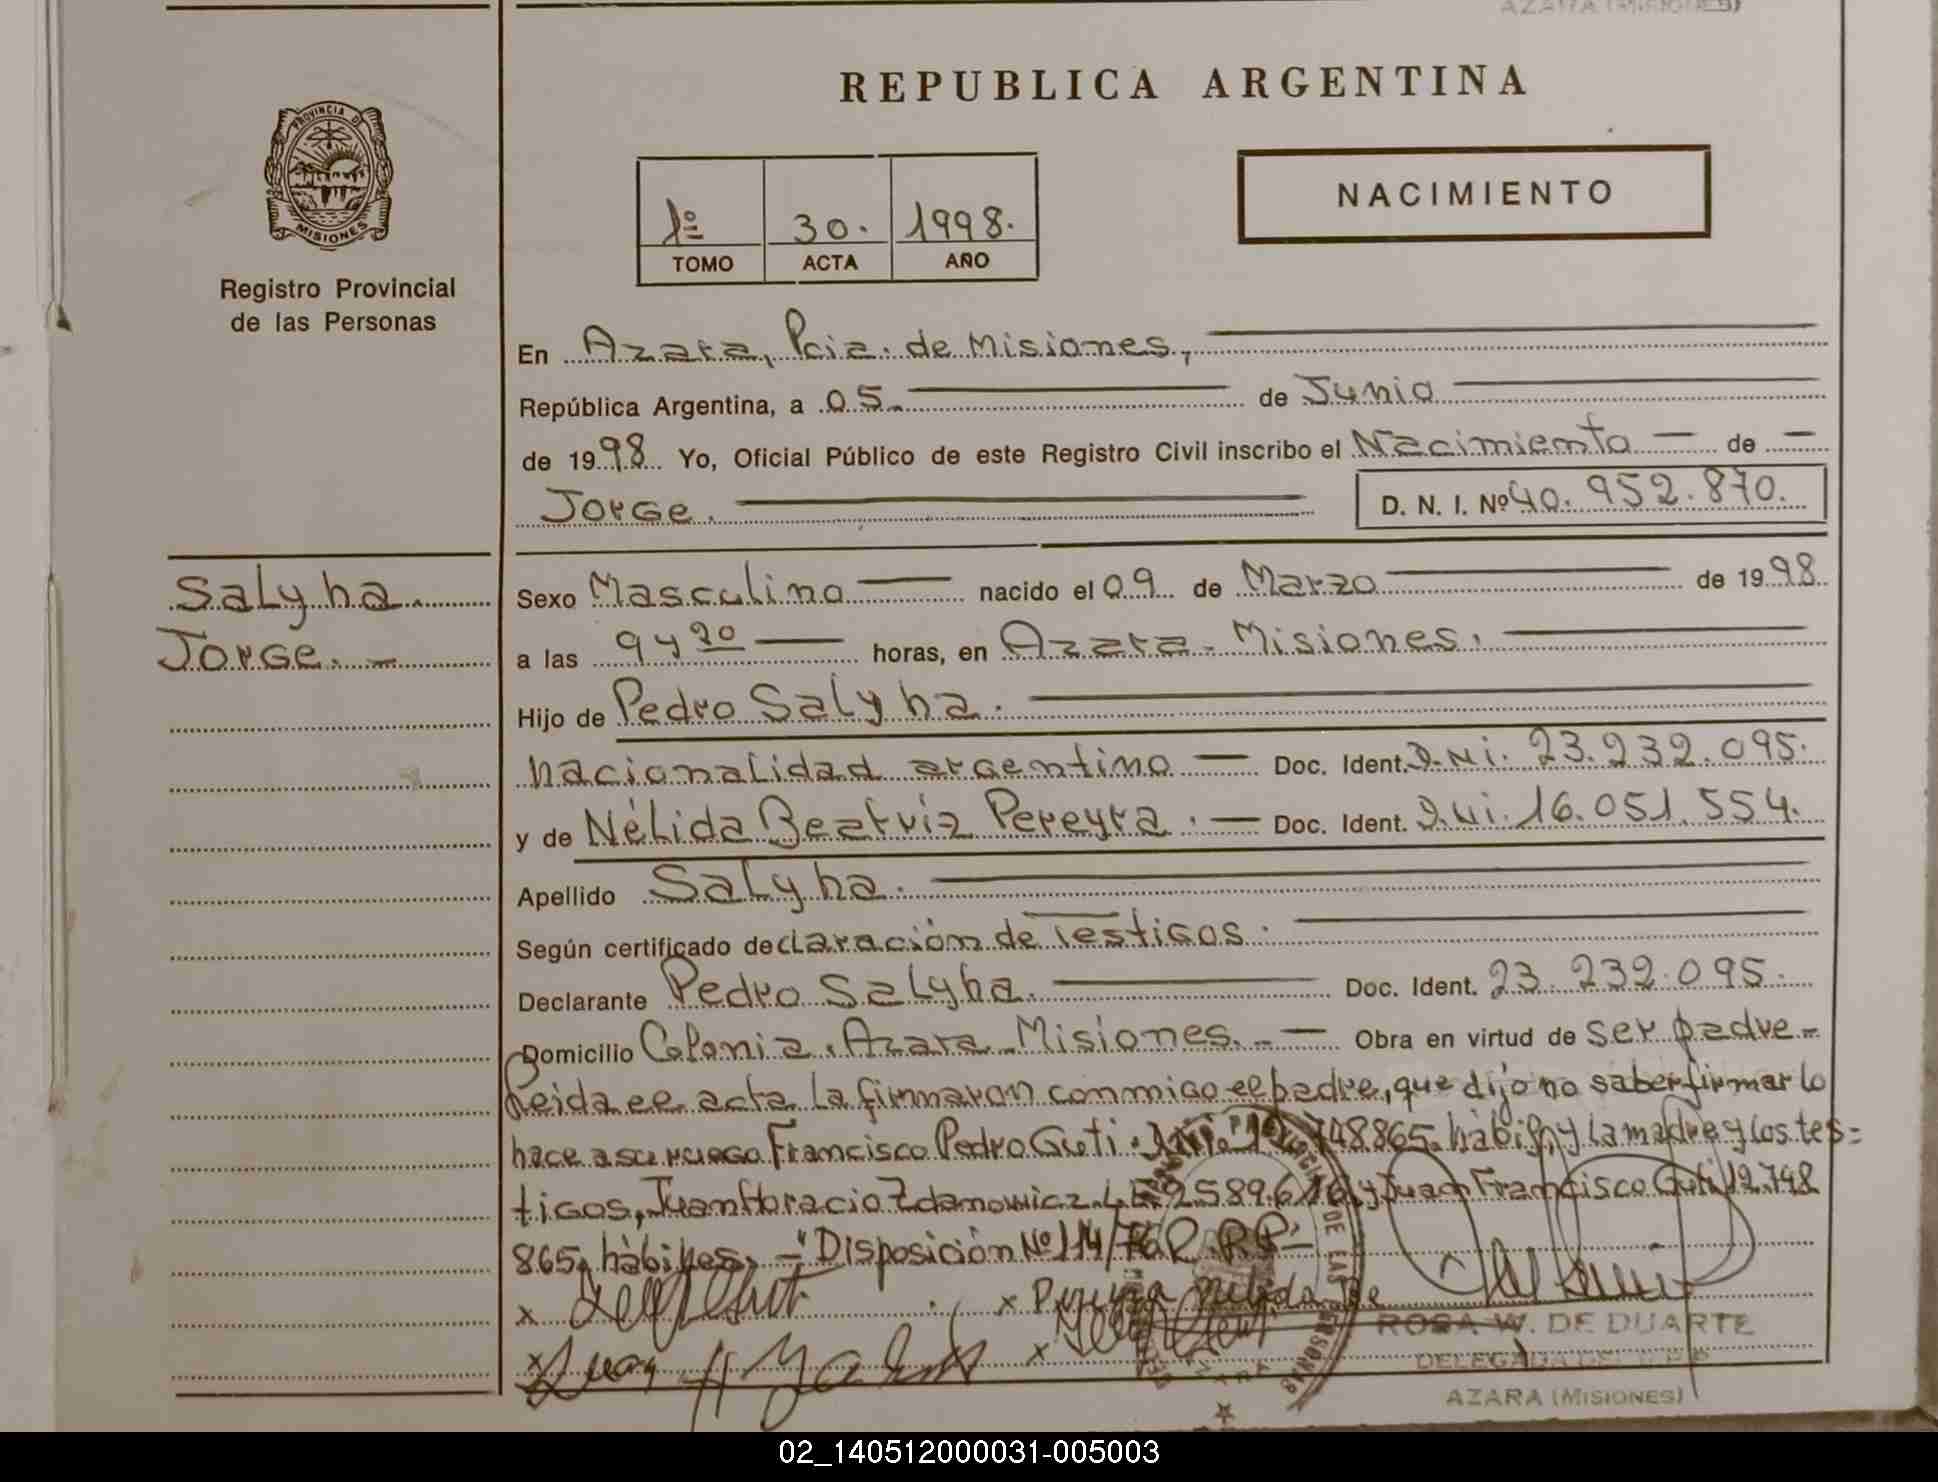 AZARA (MISIONES)
REPUBLICA ARGENTINA
PROVINCIA DE
MISIONES
Registro Provincial
de las Personas
1º 30. 1998.
TOMO ACTA AÑO
NACIMIENTO
En Azara, Pcia. de Misiones,
República Argentina, a 05. de Junio
de 1998 Yo, Oficial Público de este Registro Civil inscribo el Nacimiento — de —
Jorge. D. N. I. Nº 40.952.870.
Salyha
Jorge. —
Sexo Masculino — nacido el 09 de Marzo de 1998
a las 9 y 20 — horas, en Azara - Misiones.
Hijo de Pedro Salyha.
nacionalidad argentino — Doc. Ident. D.N.i. 23.232.095.
y de Nélida Beatriz Pereyra. — Doc. Ident. D.N.i. 16.051.554.
Apellido Salyha.
Según certificado declaración de Testigos.
Declarante Pedro Salyha. Doc. Ident. 23.232.095.
Domicilio Colonia. Azara - Misiones. — Obra en virtud de ser padre -
Leida el acta la firmaron conmigo el padre, que dijo no saber firmar lo
hace a su ruego Francisco Pedro Guti. 748.865. hábil, y la madre y los tes=
tigos, Juan Horacio Zdanowicz. L.E. 2589.616 y Juan Francisco Guti 12.748
865, hàbiles. — "Disposición Nº 114/76 R.P.P." —
x x Pereyra Nelida Be
x Juan H x
ROSA W. DE DUARTE
DELEGADA DEL R.P.P
AZARA (MISIONES)
02_140512000031-005003